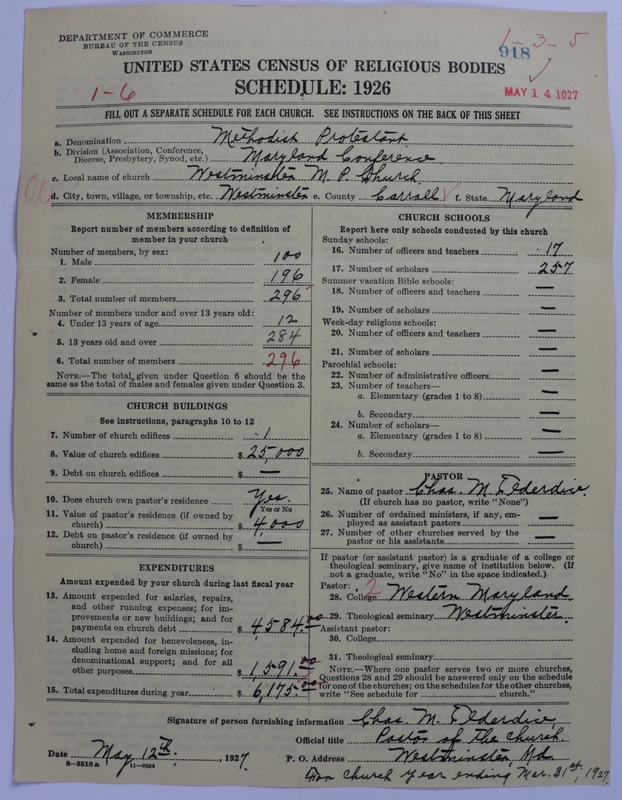 DEPARTMENT OF COMMERCE
BUREAU OF THE CENSUS
WASHINGTON
1-3-5
918
MAY 14 1927
UNITED STATES CENSUS OF RELIGIOUS BODIES
1-6
SCHEDULE: 1926
FILL OUT A SEPARATE SCHEDULE FOR EACH CHURCH. SEE INSTRUCTIONS ON THE BACK OF THIS SHEET
a. Denomination Methodist Protestant
b. Division (Association, Conference, Diocese, Presbytery, Synod, etc.) Maryland Conference
c. Local name of church Westminster M. P. Church
d. City, town, village, or township, etc. Westminster e. County Carroll f. State Maryland
MEMBERSHIP
Report number of members according to definition of
member in your church
Number of members, by sex:
1. Male 100
2. Female 196
3. Total number of members 296
Number of members under and over 13 years old:
4. Under 13 years of age 12
5. 13 years old and over 284
6. Total number of members 296
NOTE.—The total given under Question 6 should be the
same as the total of males and females given under Question 3.
CHURCH BUILDINGS
See instructions, paragraphs 10 to 12
7. Number of church edifices 1
8. Value of church edifices $ 25,000
9. Debt on church edifices $ —
10. Does church own pastor's residence Yes.
Yes or No
11. Value of pastor's residence (if owned by
church) $ 4,000
12. Debt on pastor's residence (if owned by
church) $ —
EXPENDITURES
Amount expended by your church during last fiscal year
13. Amount expended for salaries, repairs,
and other running expenses; for im-
provements or new buildings; and for
payments on church debt $ 4,584.00
14. Amount expended for benevolences, in-
cluding home and foreign missions; for
denominational support; and for all
other purposes $ 1,591.00
15. Total expenditures during year $ 6,175.00
CHURCH SCHOOLS
Report here only schools conducted by this church
Sunday schools:
16. Number of officers and teachers 17
17. Number of scholars 257
Summer vacation Bible schools:
18. Number of officers and teachers —
19. Number of scholars —
Week-day religious schools:
20. Number of officers and teachers —
21. Number of scholars —
Parochial schools:
22. Number of administrative officers —
23. Number of teachers—
a. Elementary (grades 1 to 8) —
b. Secondary —
24. Number of scholars—
a. Elementary (grades 1 to 8) —
b. Secondary —
PASTOR
25. Name of pastor Chas. M. Elderdice
(If church has no pastor, write "None")
26. Number of ordained ministers, if any, em-
ployed as assistant pastors —
27. Number of other churches served by the
pastor or his assistants —
If pastor (or assistant pastor) is a graduate of a college or
theological seminary, give name of institution below. (If
not a graduate, write "No" in the space indicated.)
Pastor: 2
28. College Western Maryland
29. Theological seminary Westminster.
Assistant pastor:
30. College
31. Theological seminary
NOTE.—Where one pastor serves two or more churches,
Questions 28 and 29 should be answered only on the schedule
for one of the churches; on the schedules for the other churches,
write "See schedule for church."
Signature of person furnishing information Chas. M. Elderdice,
Official title Pastor of the church.
Date May 12th, 1927 P. O. Address Westminster, Md.
8-5518a 11-9034
For church year ending Mar. 31st, 1927